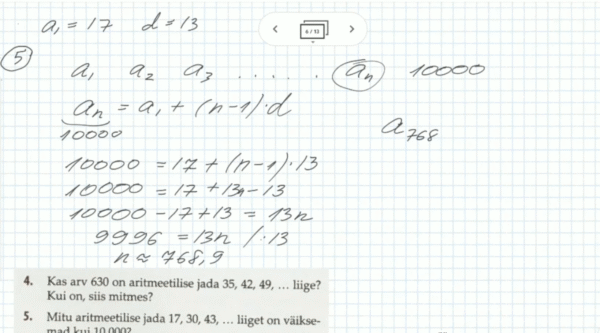 a₁ = 17 d = 13
6 / 13
5
a₁ a₂ a₃ . . . . . . aₙ 10000
aₙ = a₁ + (n-1)·d
10000
a₇₆₈
10000 = 17 + (n-1)·13
10000 = 17 + 13n - 13
10000 - 17 + 13 = 13n
9996 = 13n /·13
n ≈ 768,9
4. Kas arv 630 on aritmeetilise jada 35, 42, 49, … liige?
Kui on, siis mitmes?
5. Mitu aritmeetilise jada 17, 30, 43, … liiget on väikse-
mad kui 10 000?